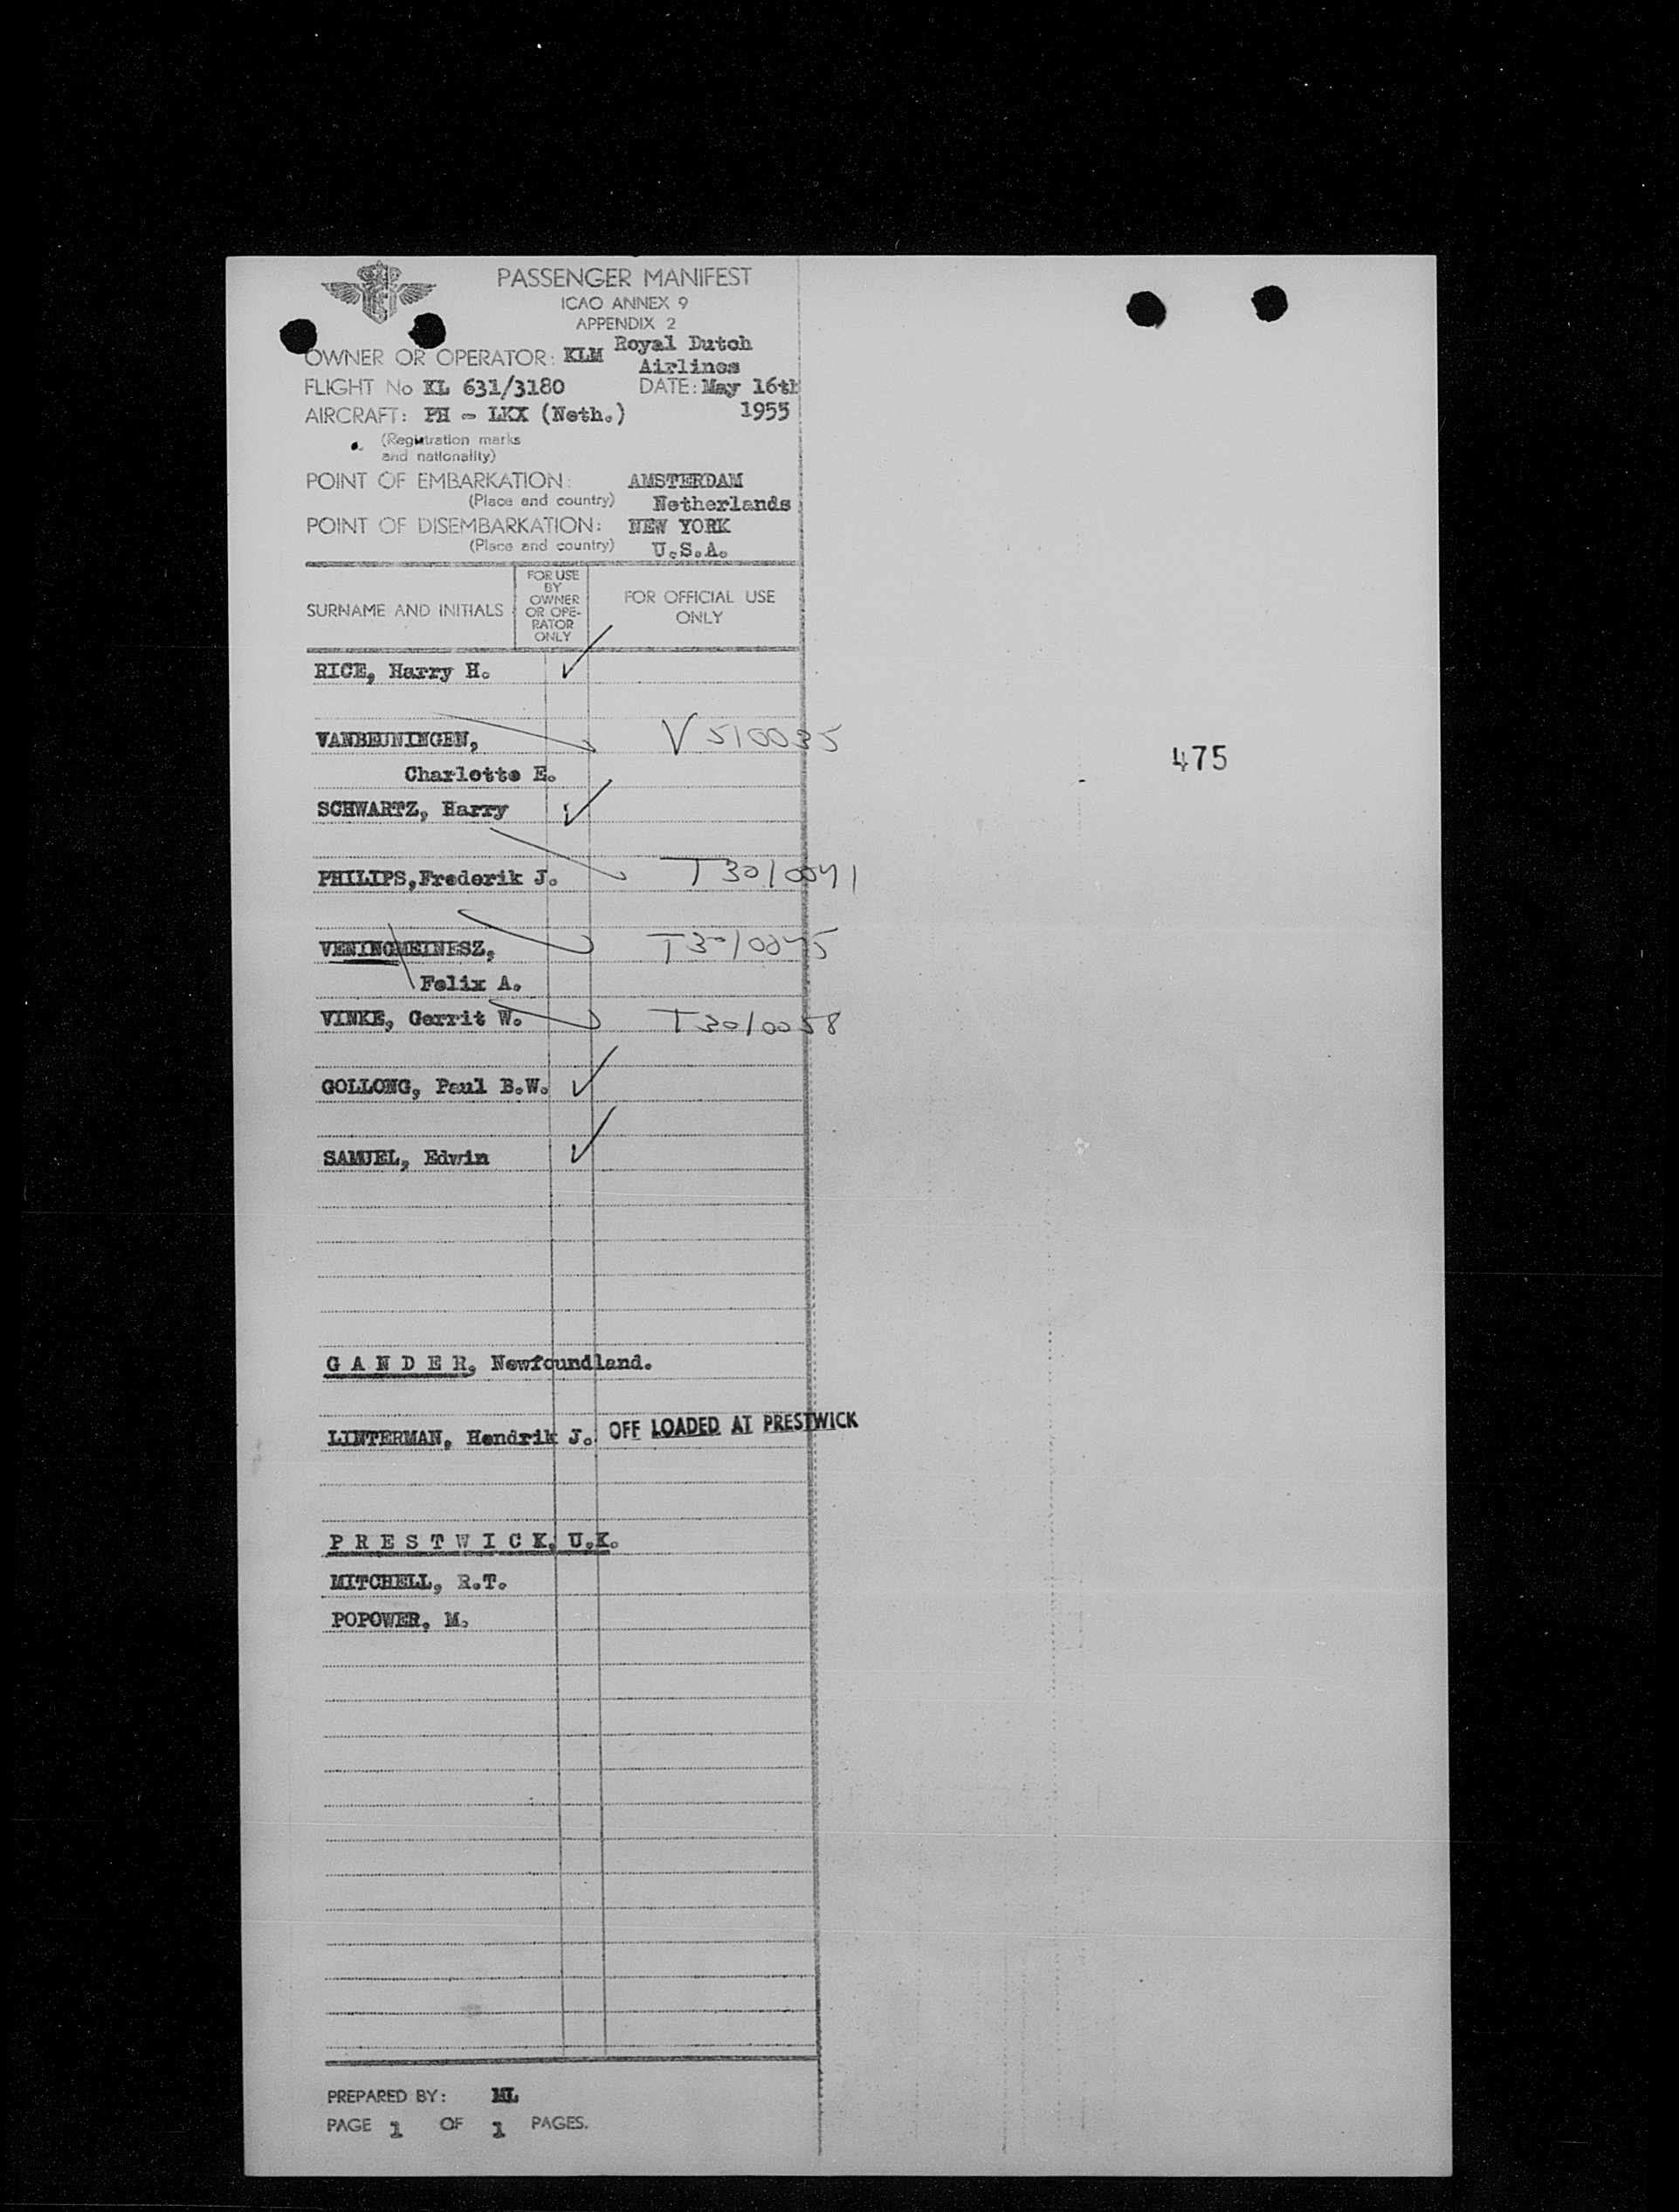 PASSENGER MANIFEST
ICAO ANNEX 9
APPENDIX 2
OWNER OR OPERATOR: KLM Royal Dutch
Airlines
FLIGHT No KL 631/3180 DATE: May 16th
AIRCRAFT: PH - LKX (Neth.) 1955
(Registration marks
and nationality)
POINT OF EMBARKATION: AMSTERDAM
(Place and country) Netherlands
POINT OF DISEMBARKATION: NEW YORK
(Place and country) U.S.A.
SURNAME AND INITIALS
FOR USE
BY
OWNER
OR OPE-
RATOR
ONLY
FOR OFFICIAL USE
ONLY
RICE, Harry H.
VANBEUNINGEN, V510035
Charlotte E.
475
SCHWARTZ, Harry
PHILIPS,Frederik J. T30/0041
VENINGMEINESZ, T30/0045
Felix A.
VINKE, Gerrit W. T30/0058
GOLLONG, Paul B.W.
SAMUEL, Edwin
G A N D E R, Newfoundland.
LINTERMAN, Hendrik J. OFF LOADED AT PRESTWICK
P R E S T W I C K, U.K.
MITCHELL, R.T.
POPOWER, M.
PREPARED BY: ML
PAGE 1 OF 1 PAGES.